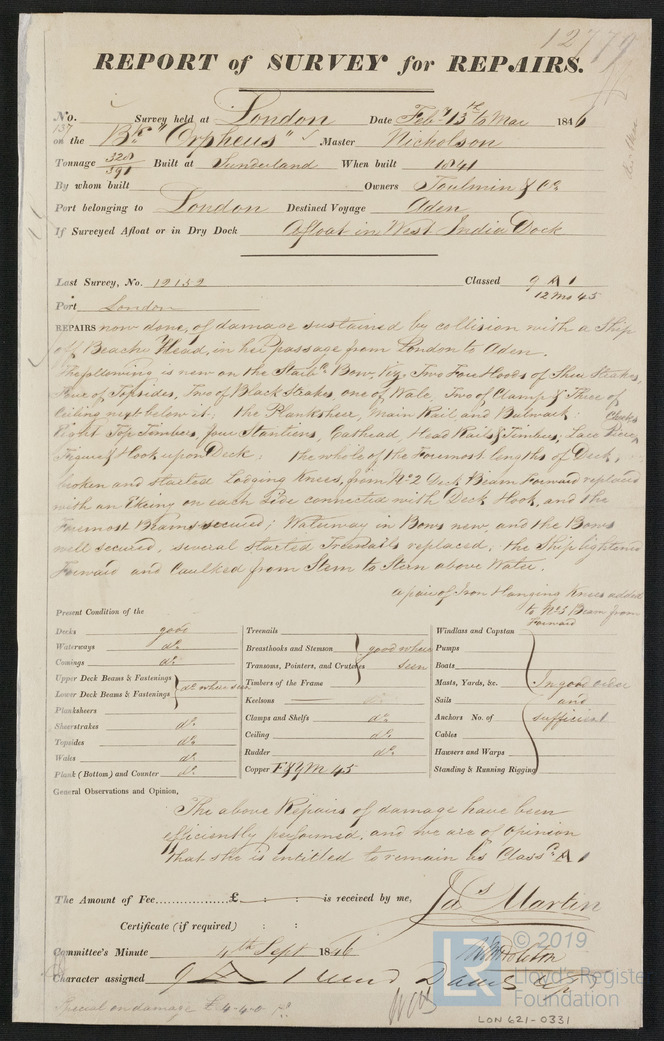 12777
REPORT of SURVEY for REPAIRS.
No. 137 Survey held at London Date Feby 13th to Mar 1846
on the Bk "Orpheus" Master Nicholson
Tonnage 320/391 Built at Sunderland When built 1841
By whom built Owners Toulmin & Co
Port belonging to London Destined Voyage Aden
If Surveyed Afloat or in Dry Dock Afloat in West India Dock
Last Survey, No. 12152 Classed 9 A 1
12 Mo 45
Port London
REPAIRS now done, of damage sustained by collision with a Ship
off Beachy Head, in her passage from London to Aden.
The following is new on the Starbd Bow, Viz, Two Fore Hoods of Sheer Strakes,
Five of Topsides, Two of Black Strakes, one of Wale, Two of Clamp & Three of
Ceiling next below it; the Planksheer, Main Rail and Bulwark; Cheeks
Eight Top Timbers, four Stantions, Cathead, Head Rails & Timbers, Lace Piece,
Figure & Hook upon Deck; the whole of the Foremost lengths of Deck,
broken and started Lodging Knees, from No 2 Deck Beam Forward replaced
with an Ekeing on each Side connected with Deck Hook, and the
Foremost Beams secured; Waterway in Bows new, and the Bows
well secured, several started Treenails replaced, the Ship lightened
Forward and Caulked from Stem to Stern above Water.
a pair of Iron Hanging Knees added
to No 5 Beam from
Forward
Present Condition of the
Decks good
Waterways do
Comings do
Upper Deck Beams & Fastenings
Lower Deck Beams & Fastenings do where seen
Planksheers
Sheerstrakes do
Topsides do
Wales do
Plank (Bottom) and Counter do
Treenails
Breasthooks and Stemson good where
Transoms, Pointers, and Crutches seen
Timbers of the Frame
Keelsons
Clamps and Shelfs do
Ceiling do
Rudder do
Copper F & YM 45
Windlass and Capstan
Pumps
Boats
Masts, Yards, &c. In good order
Sails and
Anchors No. of sufficient
Cables
Hawsers and Warps
Standing & Running Rigging
General Observations and Opinion,
The above Repairs of damage have been
efficiently performed, and we are of opinion
that she is entitled to remain as Classd A 1
The Amount of Fee............£ : : is received by me, Jas Martin
Certificate (if required) : :
Committee's Minute 4th Sept 1846
Character assigned 9 A 1
Special on damage £4-4-0 pd
LR © 2019
Lloyd's Register
Foundation
LON 621-0331